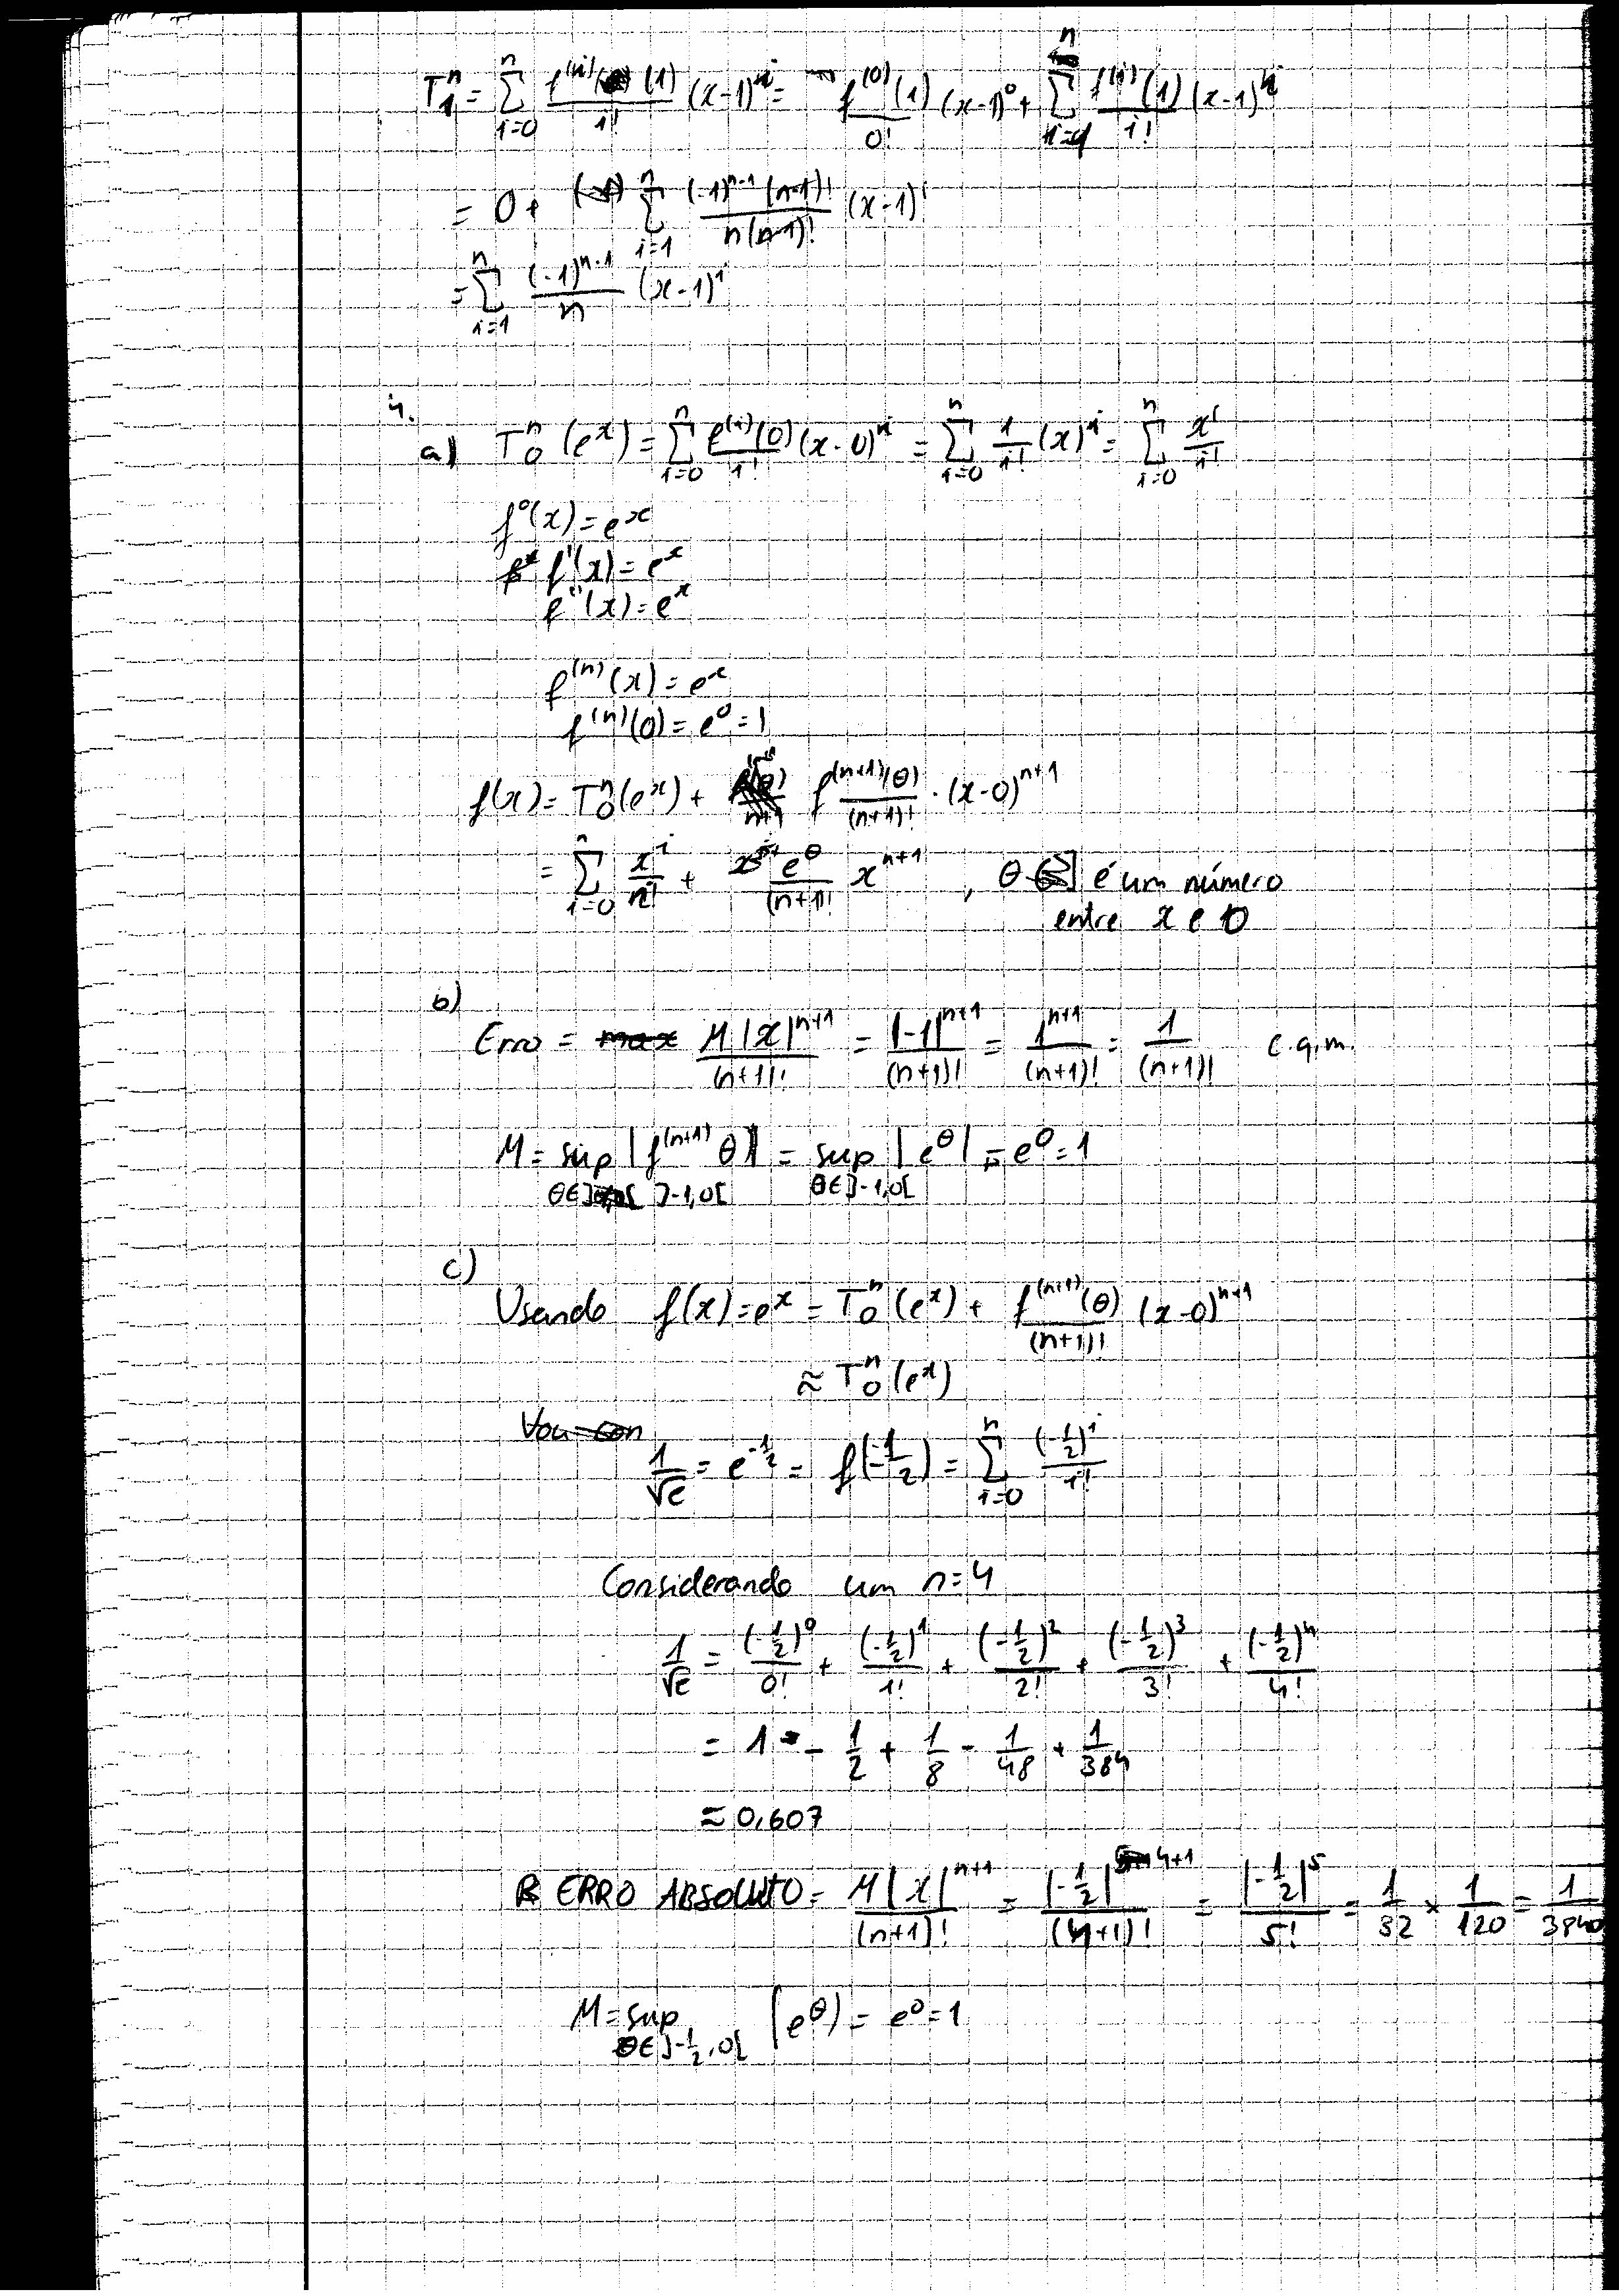 T₁ⁿ = Σ_{i=0}^{n} f^{(i)}(1)/i! (x-1)^i = f^{(0)}(1)/0! (x-1)^0 + Σ_{i=1}^{n} f^{(i)}(1)/i! (x-1)^i
= 0 + Σ_{i=1}^{n} (-1)^{n-1}(n-1)!/n(n-1)! (x-1)^i
= Σ_{i=1}^{n} (-1)^{n-1}/n (x-1)^i
4.
a) T₀ⁿ(e^x) = Σ_{i=0}^{n} f^{(i)}(0)/i! (x-0)^i = Σ_{i=0}^{n} 1/i! (x)^i = Σ_{i=0}^{n} x^i/i!
f⁰(x) = e^x
f'(x) = e^x
f''(x) = e^x
f^{(n)}(x) = e^x
f^{(n)}(0) = e^0 = 1
f(x) = T₀ⁿ(e^x) + f^{(n+1)}(θ)/(n+1)! · (x-0)^{n+1}
= Σ_{i=0}^{n} x^i/n! + e^θ/(n+1)! x^{n+1} , θ é um número
entre x e 0
b)
Erro = M|x|^{n+1}/(n+1)! = |-1|^{n+1}/(n+1)! = 1^{n+1}/(n+1)! = 1/(n+1)! c.q.m.
M = sup_{θ∈]-1,0[} |f^{(n+1)} θ| = sup_{θ∈]-1,0[} |e^θ| = e^0 = 1
c)
Usando f(x) = e^x = T₀ⁿ(e^x) + f^{(n+1)}(θ)/(n+1)! (x-0)^{n+1}
≈ T₀ⁿ(e^x)
1/√e = e^{-1/2} = f(-1/2) = Σ_{i=0}^{n} (-1/2)^i/i!
Considerando um n=4
1/√e = (-1/2)^0/0! + (-1/2)^1/1! + (-1/2)^2/2! + (-1/2)^3/3! + (-1/2)^4/4!
= 1 - 1/2 + 1/8 - 1/48 + 1/384
≈ 0,607
ERRO ABSOLUTO = M|x|^{n+1}/(n+1)! = |-1/2|^{4+1}/(4+1)! = |-1/2|^5/5! = 1/32 × 1/120 = 1/3840
M = sup_{θ∈]-1/2,0[} (e^θ) = e^0 = 1